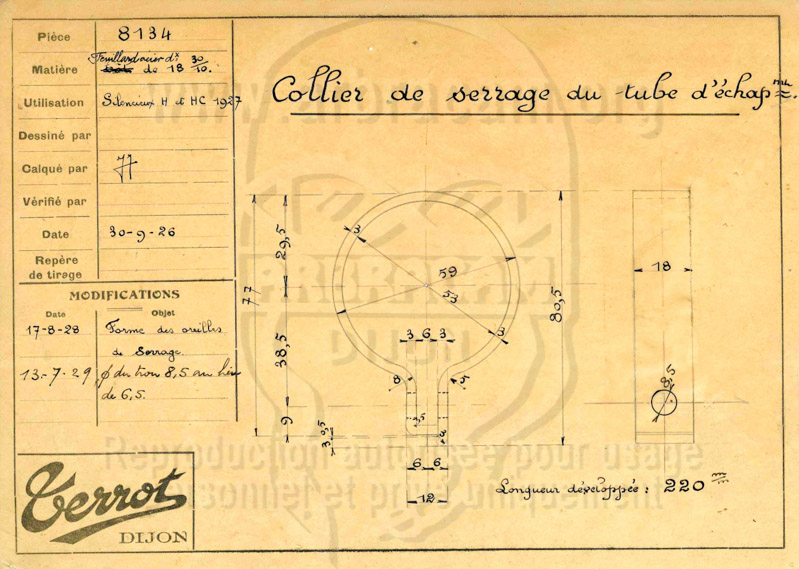 Pièce 8134
Feuillard acier dx 30/10.
Matière de 18
Utilisation Silencieux H et HC 1927
Dessiné par
Calqué par
Vérifié par
Date 30-9-26
Repère
de tirage
MODIFICATIONS
Date Objet
17-8-28 Forme des oreilles
de serrage.
13-7-29 φ du trou 8,5 au lieu
de 6,5.
Terrot
DIJON
Collier de serrage du tube d'échapmt.
3
59
53
3
29,5
77
38,5
9
80,5
3 6 3
8
5
3 0,5
6 6
12
18
8,5
Longueur développée : 220 m/m
www.arbracam.org
ARBRACAM
DIJON
Reproduction autorisée pour usage
personnel et privé uniquement